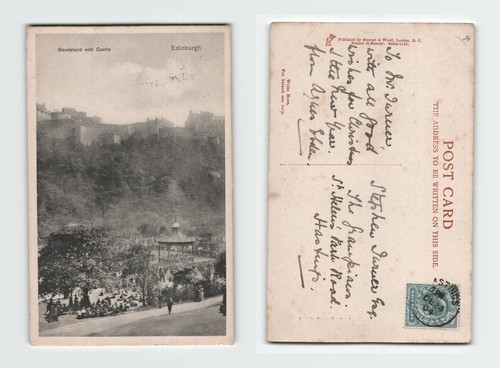 Bandstand with Castle
Edinburgh
Published by Stewart & Woolf, London, E. C.
Printed in Saxony. Series
Write Here.
For Inland use only.
POST CARD
THE ADDRESS TO BE WRITTEN ON THIS SIDE.
To Mr. Turner
with all good
wishes for Christmas
& the New Year.
from Agnes
Stephen Turner Esq.
The Grampians.
St Helens Park Road.
Hastings.